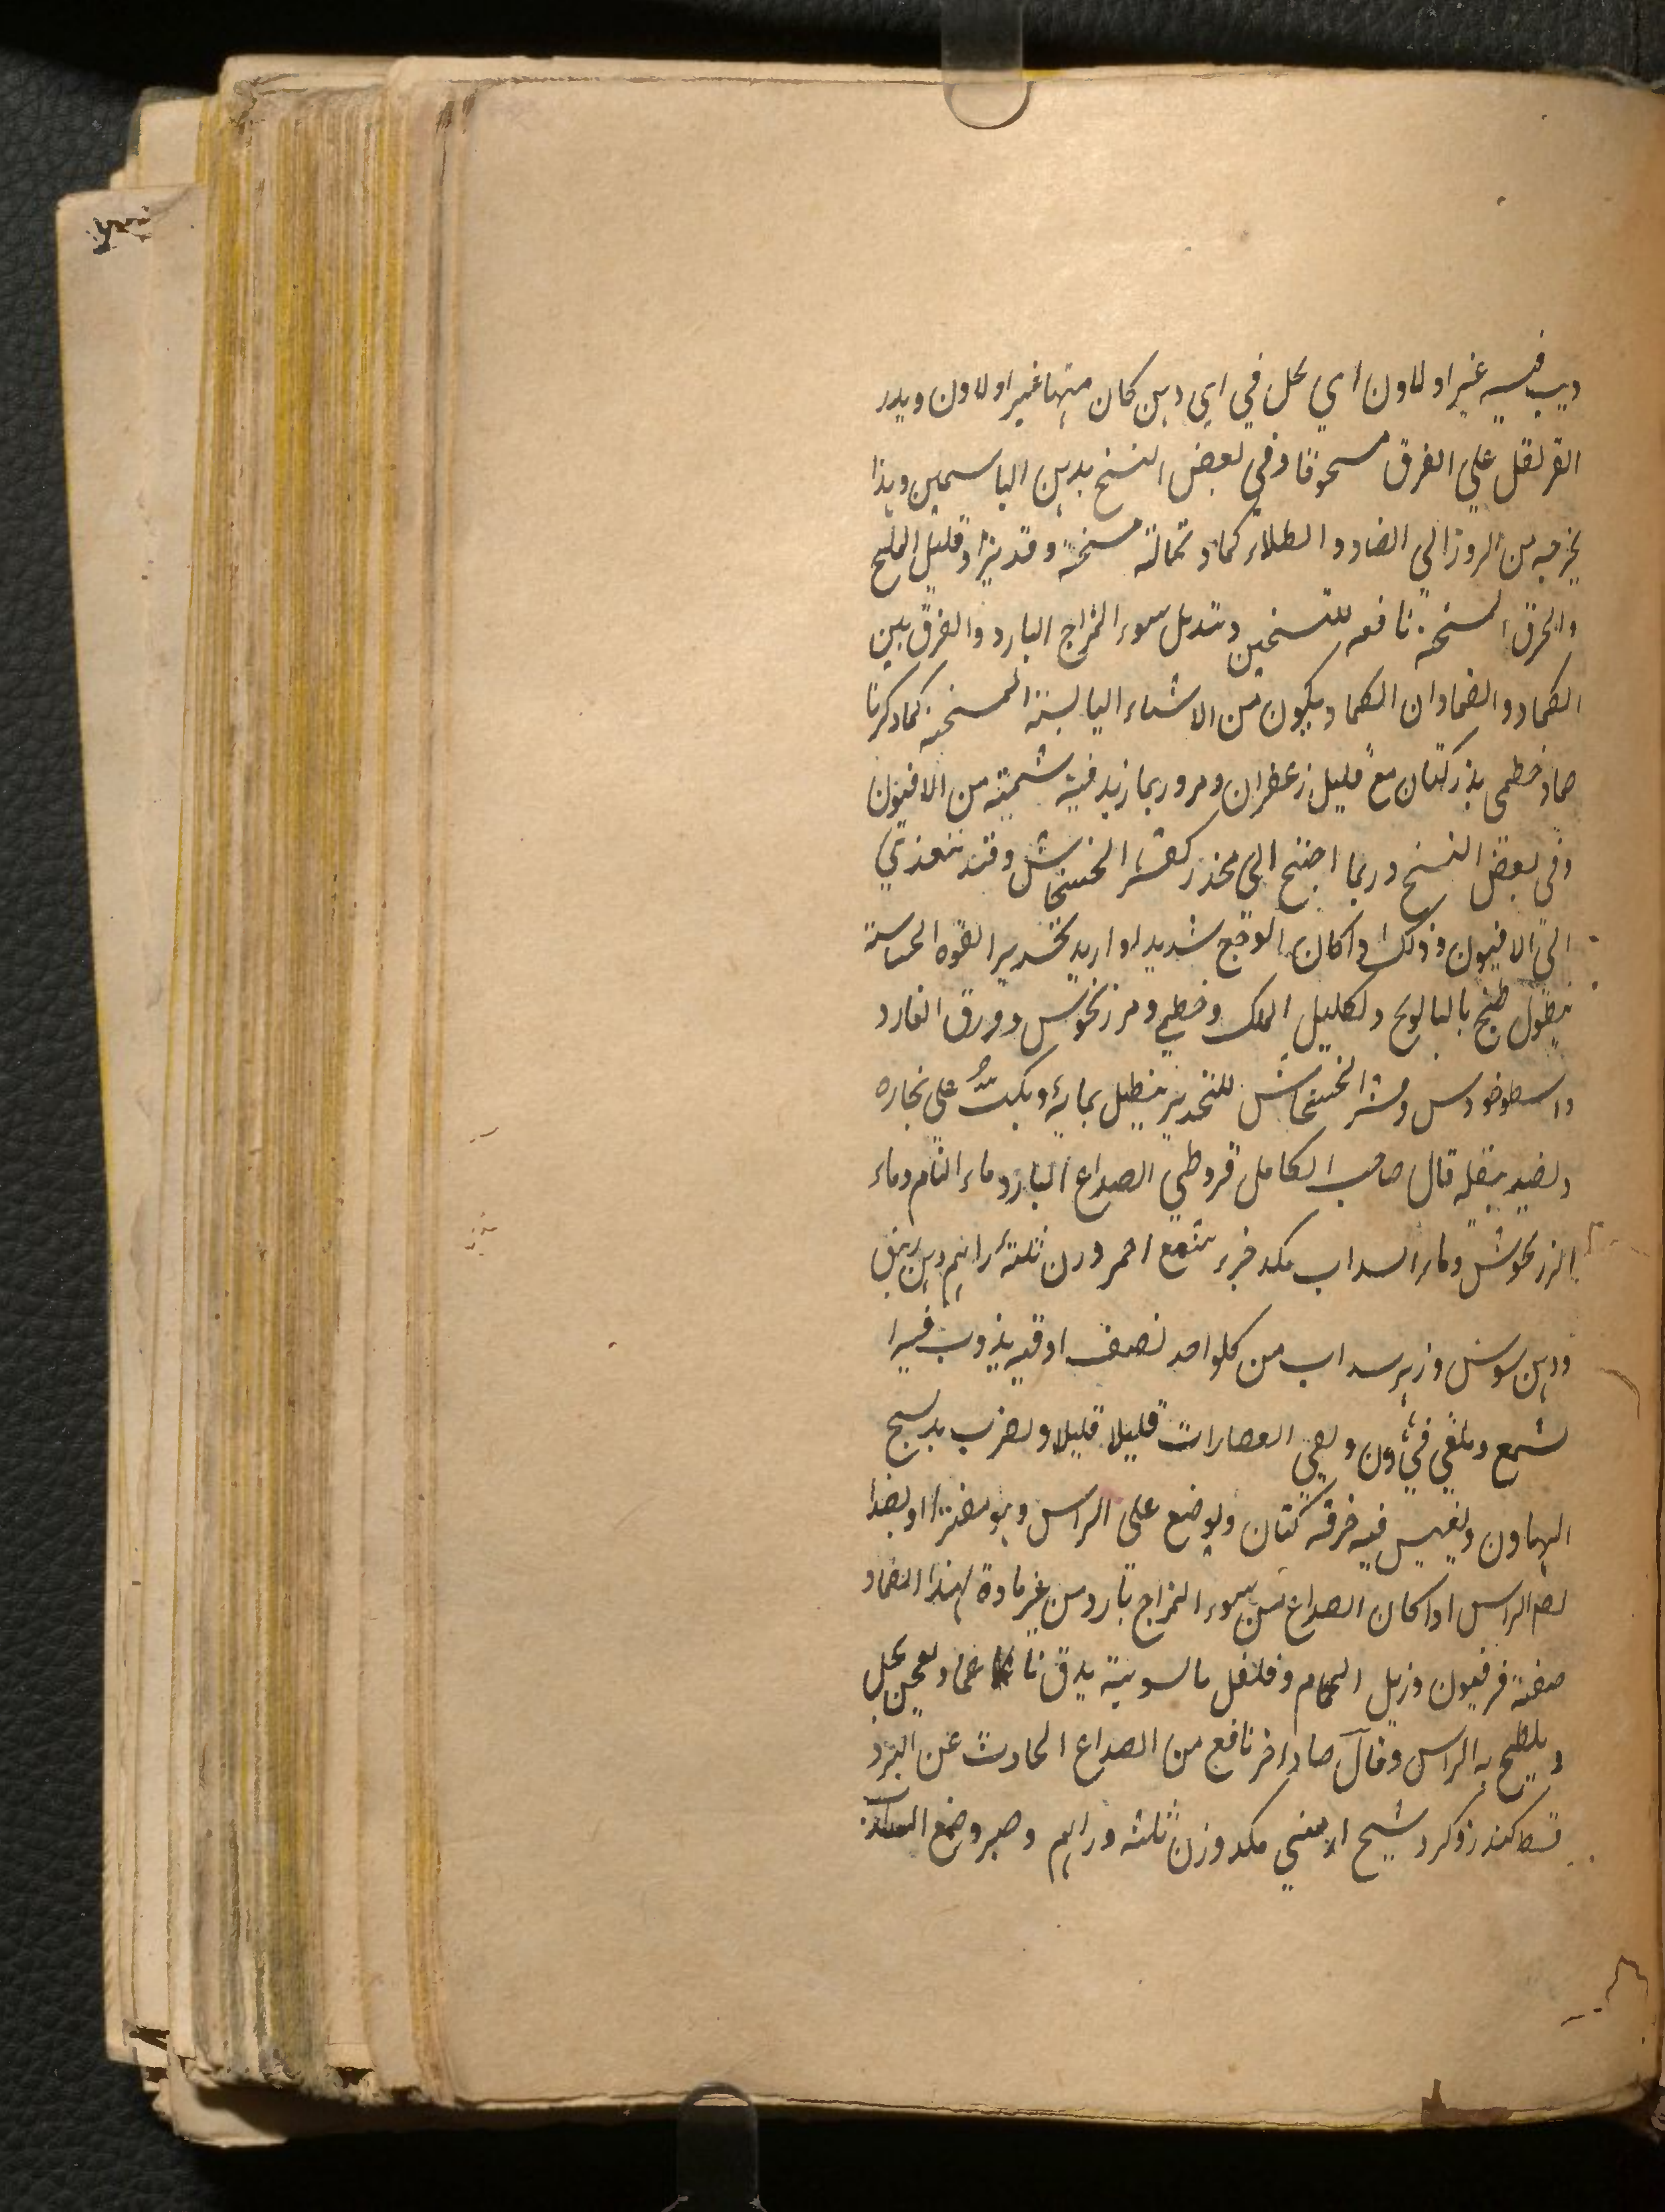 ديب فيه عنبر او لادن اي يحل في اي دهن كان منها عنبر او لادن ويذر
القرنفل علي الفرق مسحوقا وفي بعض النسخ بدهن الياسمين وهذا
يخرجه من المروخ الي الضماد و الطلاء كماد نخالة مسخنة وقد يزاد قليل الملح
والخرق المسخنة نافعه للتسخين وتبديل سوء المزاج البارد والفرق بين
الكماد والضماد ان الكماد يكون من الاشياء اليابسة المسخنة كما ذكرنا
ضماد خطمي بذر كتان مع قليل زعفران ومر وربما زيد فيه شمة من الافيون
وفي بعض النسخ وربما احتيج الي مخدر كقشر الخشخاش وقد يتعدي
الي الافيون وذلك اذا كان الوجع شديدا و اريد تخدير القوه الحساسة
نطول طبخ بالبابونج واكليل الملك وخطمي ومرزنجوش وورق الغار و
واسطوخودوس وقشر الخشخاش للتخدير ينطل بمائه ويكب علي بخاره
ويضمد بثفله قال صاحب الكامل قيروطي الصداع البارد ماء النمام وماء
المرزنجوش وماء السداب مكد جزء شمع احمر وزن ثلثة دراهم دهن زنبق
ودهن سوسن وزهر سداب من كلواحد نصف اوقيه يذوب فيه ا
لشمع ويلقي في هاون ويلقي العصارات قليلا قليلا ويضرب بدستج
الهاون ويغمس فيه خرقه كتان ويوضع علي الراس وهو مفترا او يضا
لضم الراس اذا كان الصداع من سوء المزاج بارد من غير مادة بهذا الضماد
صفته فرفيون وزبل الحمام وفلفل بالسوية يدق ناعما ويعجن بخل
ويلطخ به الراس وقال ضماد اخر نافع من الصداع الحادث عن البرد
قسط كندر وكرد شيح ارمني مكد وزن ثلثه دراهم وصبر وضع السداب